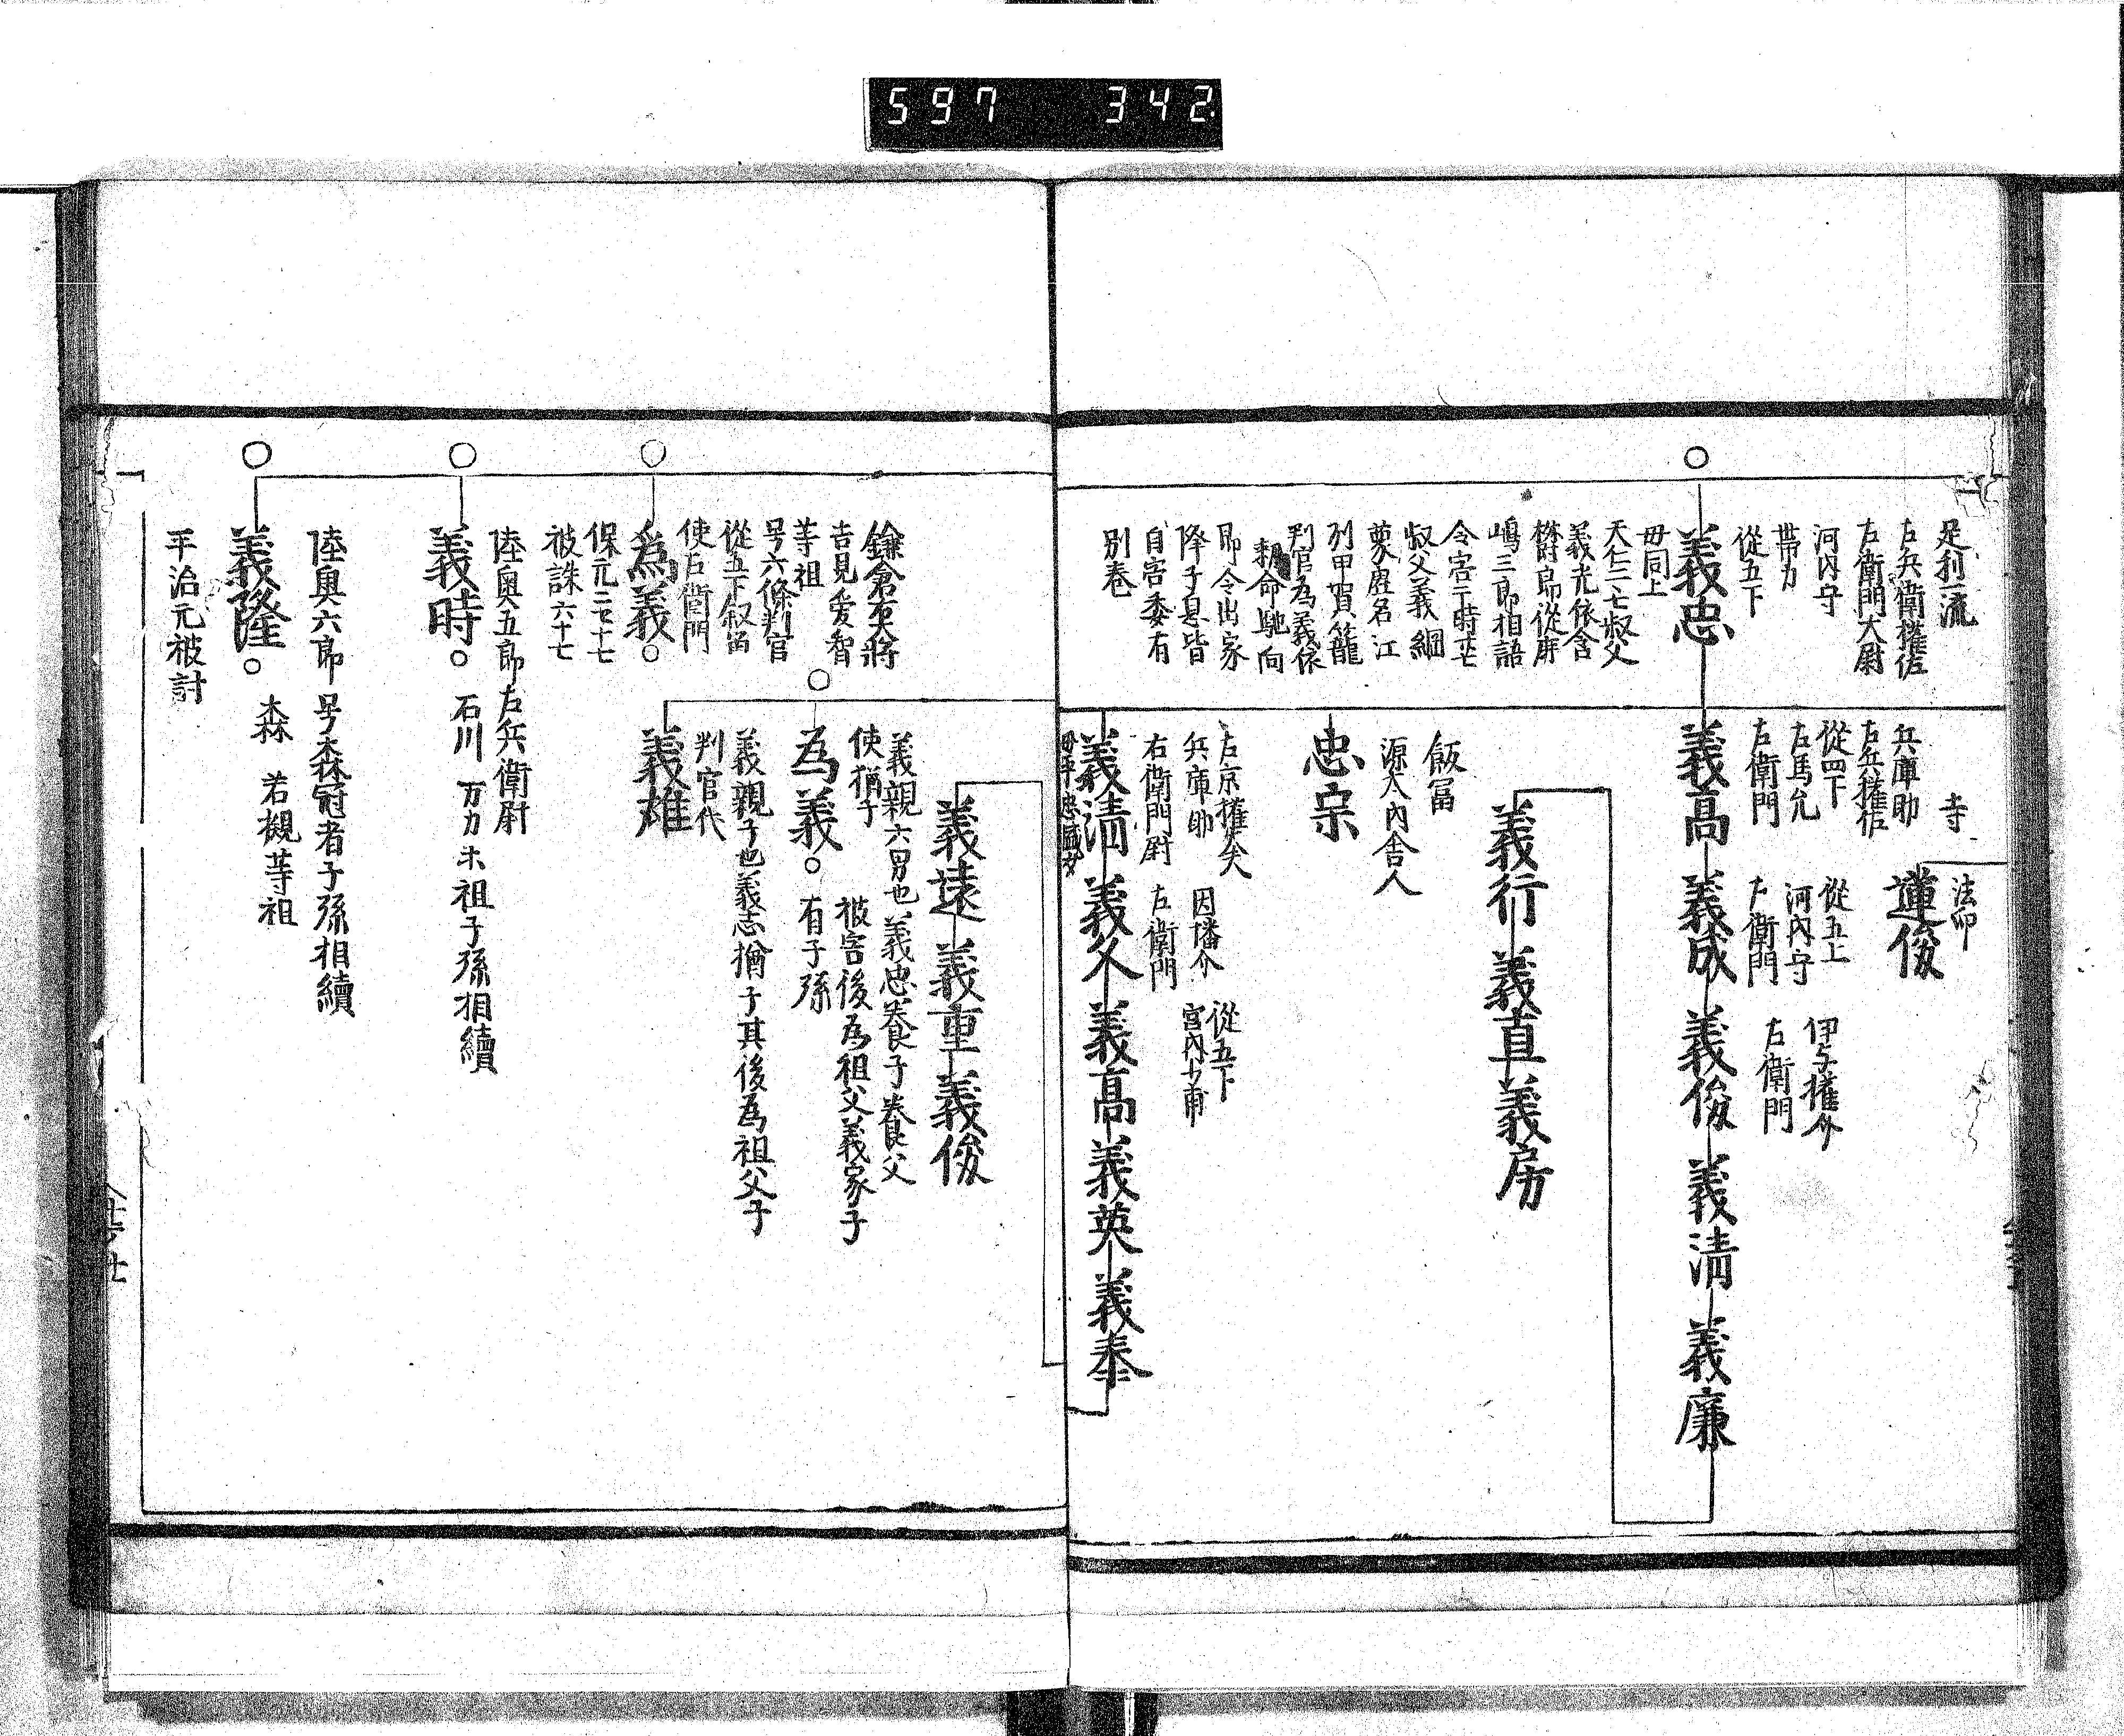 597 342
足利一流
左兵衛権佐
左衛門大尉
河内守
帯刀
従五下
義忠
母同上
天仁二二七叔父
義光依含
欝即従
嶋三郎相語
令害于時
叔父義綱
蒙虚名江
列甲賀籠
判官為義依
勅命馳向
即令出家
降子息皆
自害委有
別巻
寺
法印
蓮俊
兵庫助
左兵権佐
従四下
左馬允
左衛門
義高
従五上
河内守
左衛門
義成
伊与権介
左衛門
義俊
義清
義廉
義行
義直
義房
飯冨
源太内舎人
忠宗
左京権大夫
兵庫助
右衛門尉
義清
母平忠盛女
因播介
左衛門
義久
従五下
宮内少甫
義高
義英
義奉
義遠
義重
義俊
鎌倉右大将
吉見愛智
等祖
号六條判官
従五下叙留
使左衛門
為義
保元三七十七
被誅六十七
義親六男也義忠養子養父
使猶子
被害後為祖父義家子
為義
有子孫
義親子也義忠猶子其後為祖父子
判官代
義雄
陸奥五郎左兵衛尉
義時
石川 万力ホ祖子孫相続
陸奥六郎 号森冠者子孫相續
義隆
森 若槻等祖
平治元被討